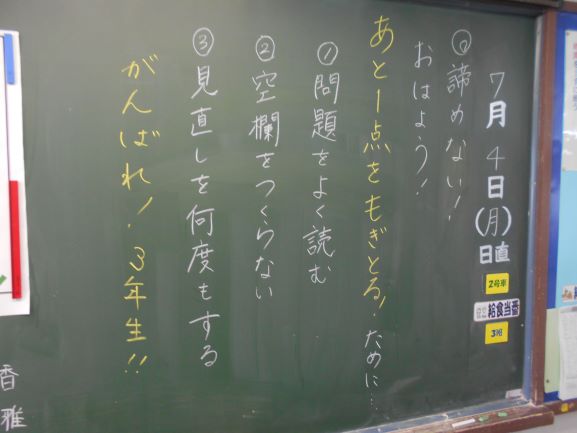 7月4日(月)
日直
2号車
給食当番
3班
⓪諦めない!
おはよう!
あと1点をもぎとる!ために…
①問題をよく読む
②空欄をつくらない
③見直しを何度もする
がんばれ!3年生!!
香
雅